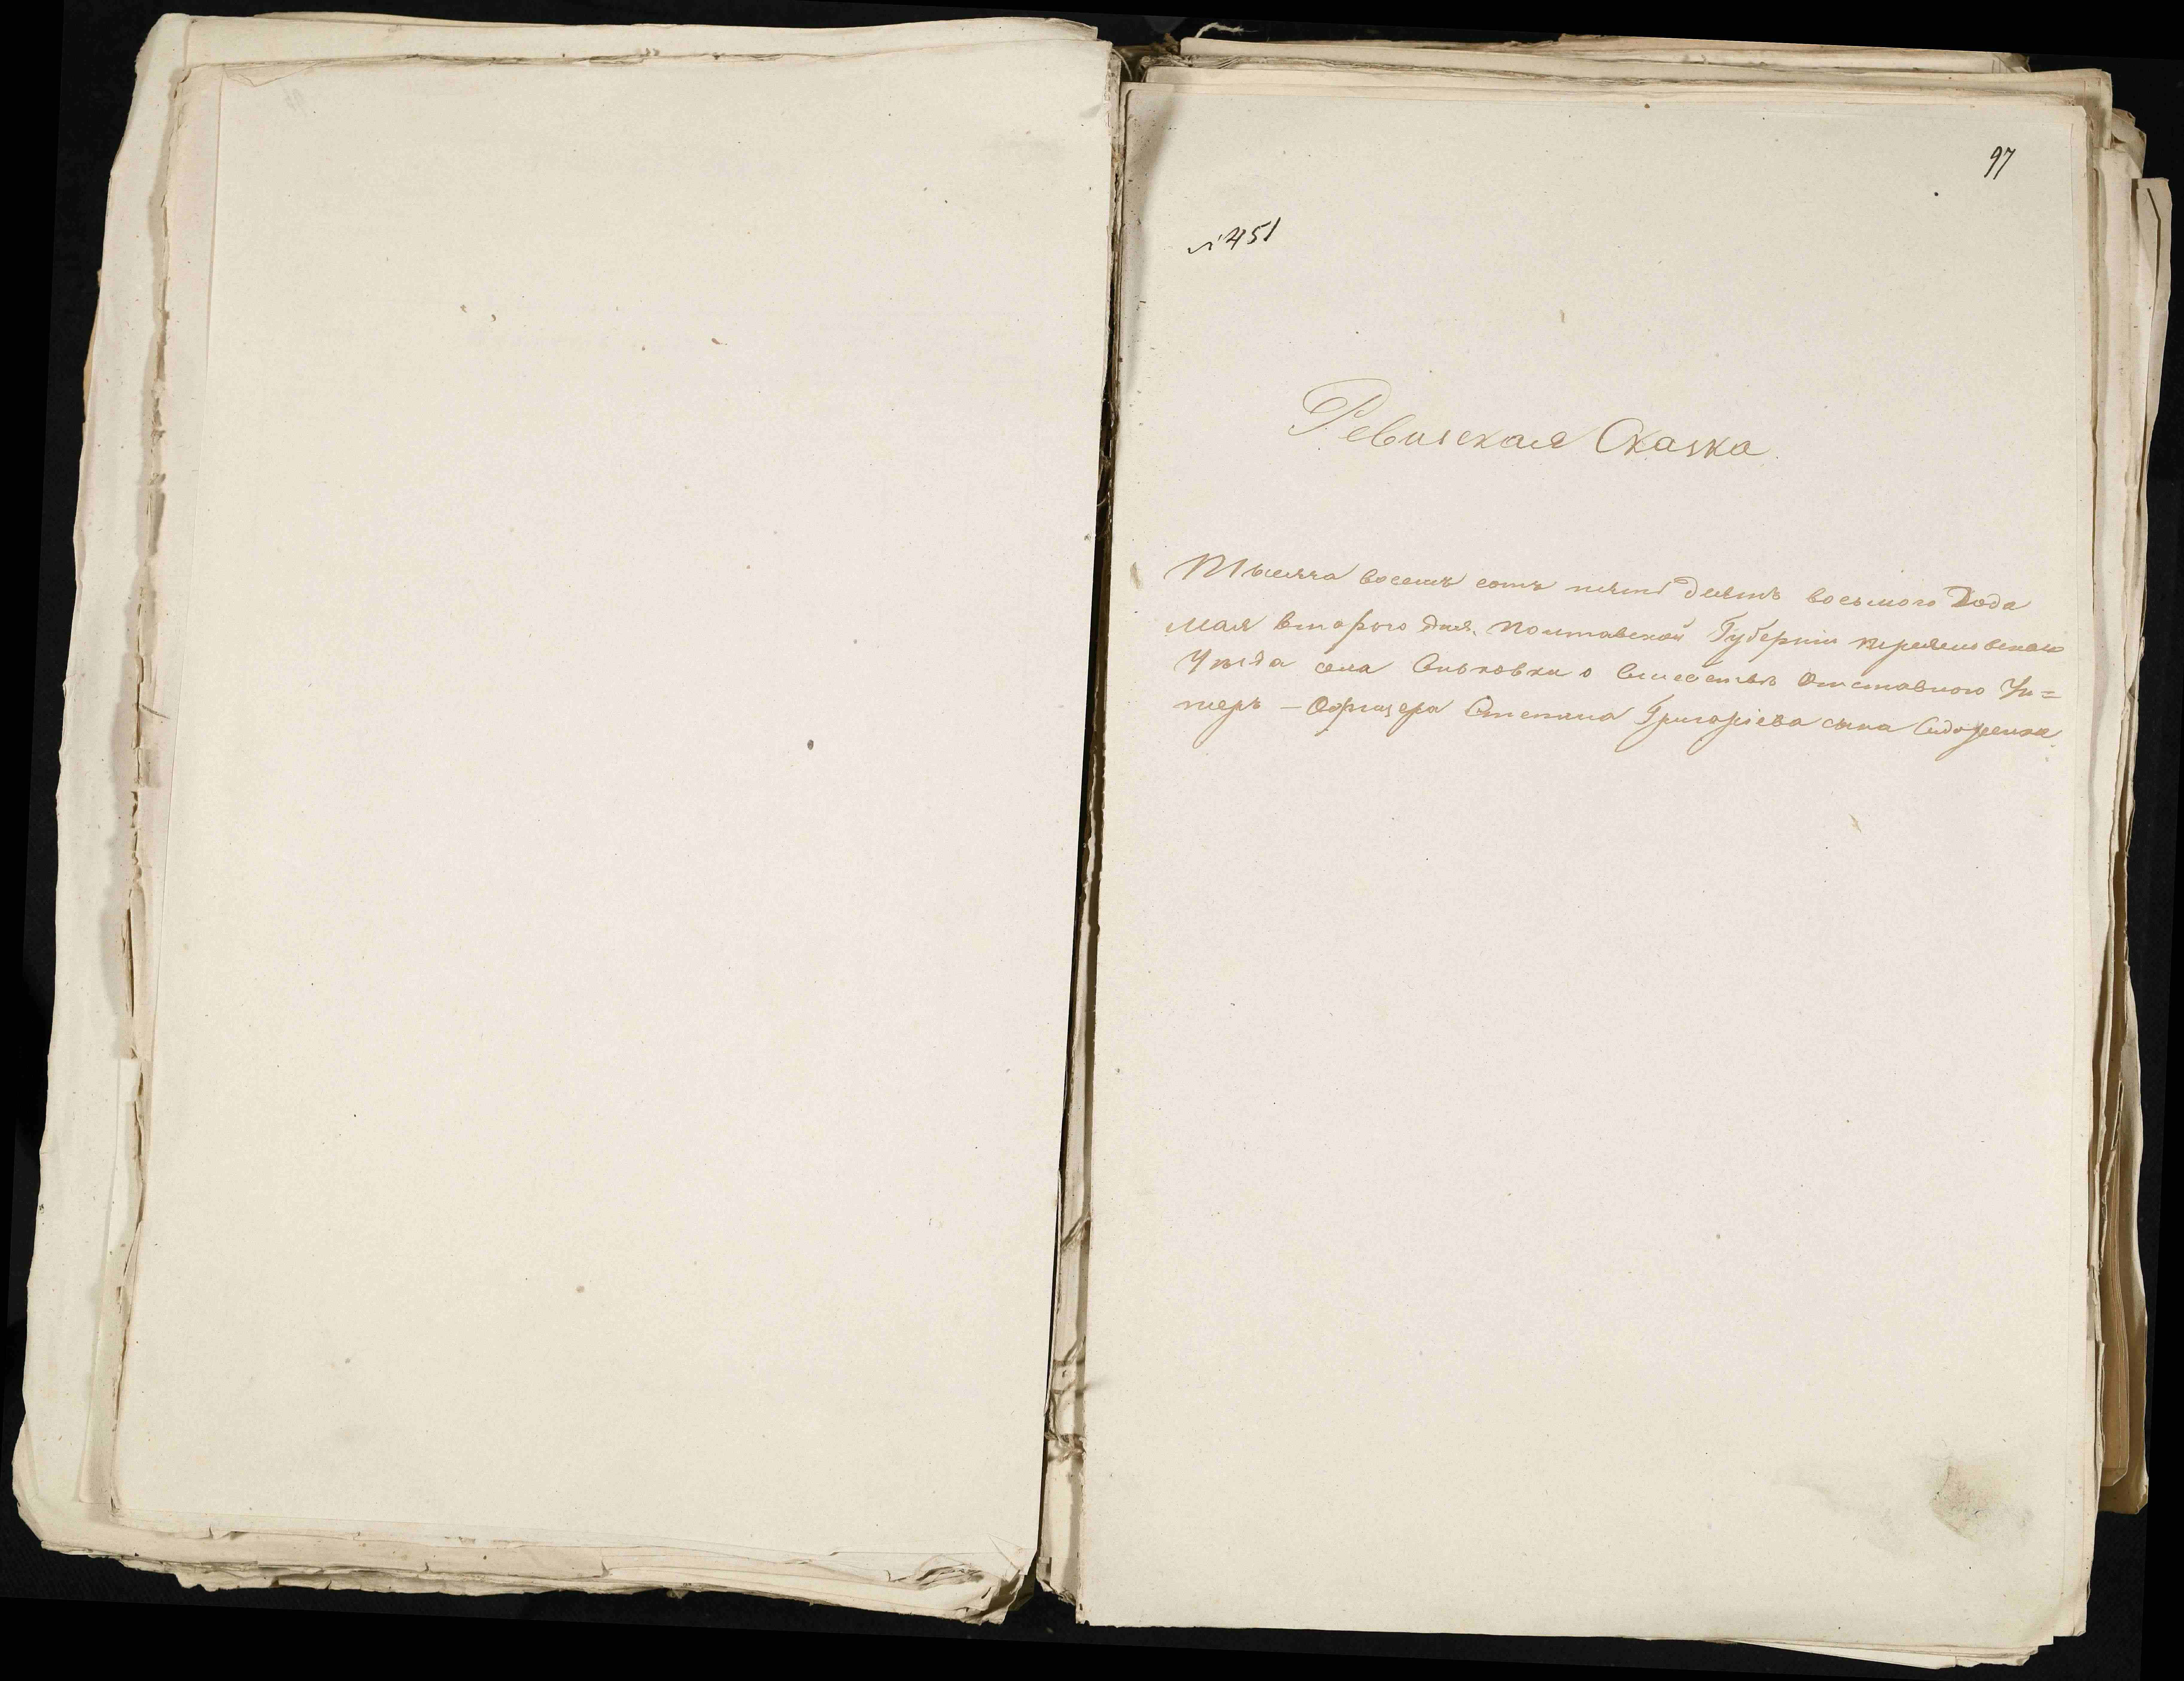 97
№ 451
Ревизская Сказка
Тысяча восемь сотъ пятьдесятъ восьмого Года
Мая второго дня, Полтавской Губерніи Переяславскаго
Уѣзда села о семействѣ Отставного Ун=
теръ - Офицера Степана Григорьева сына Сидоренка